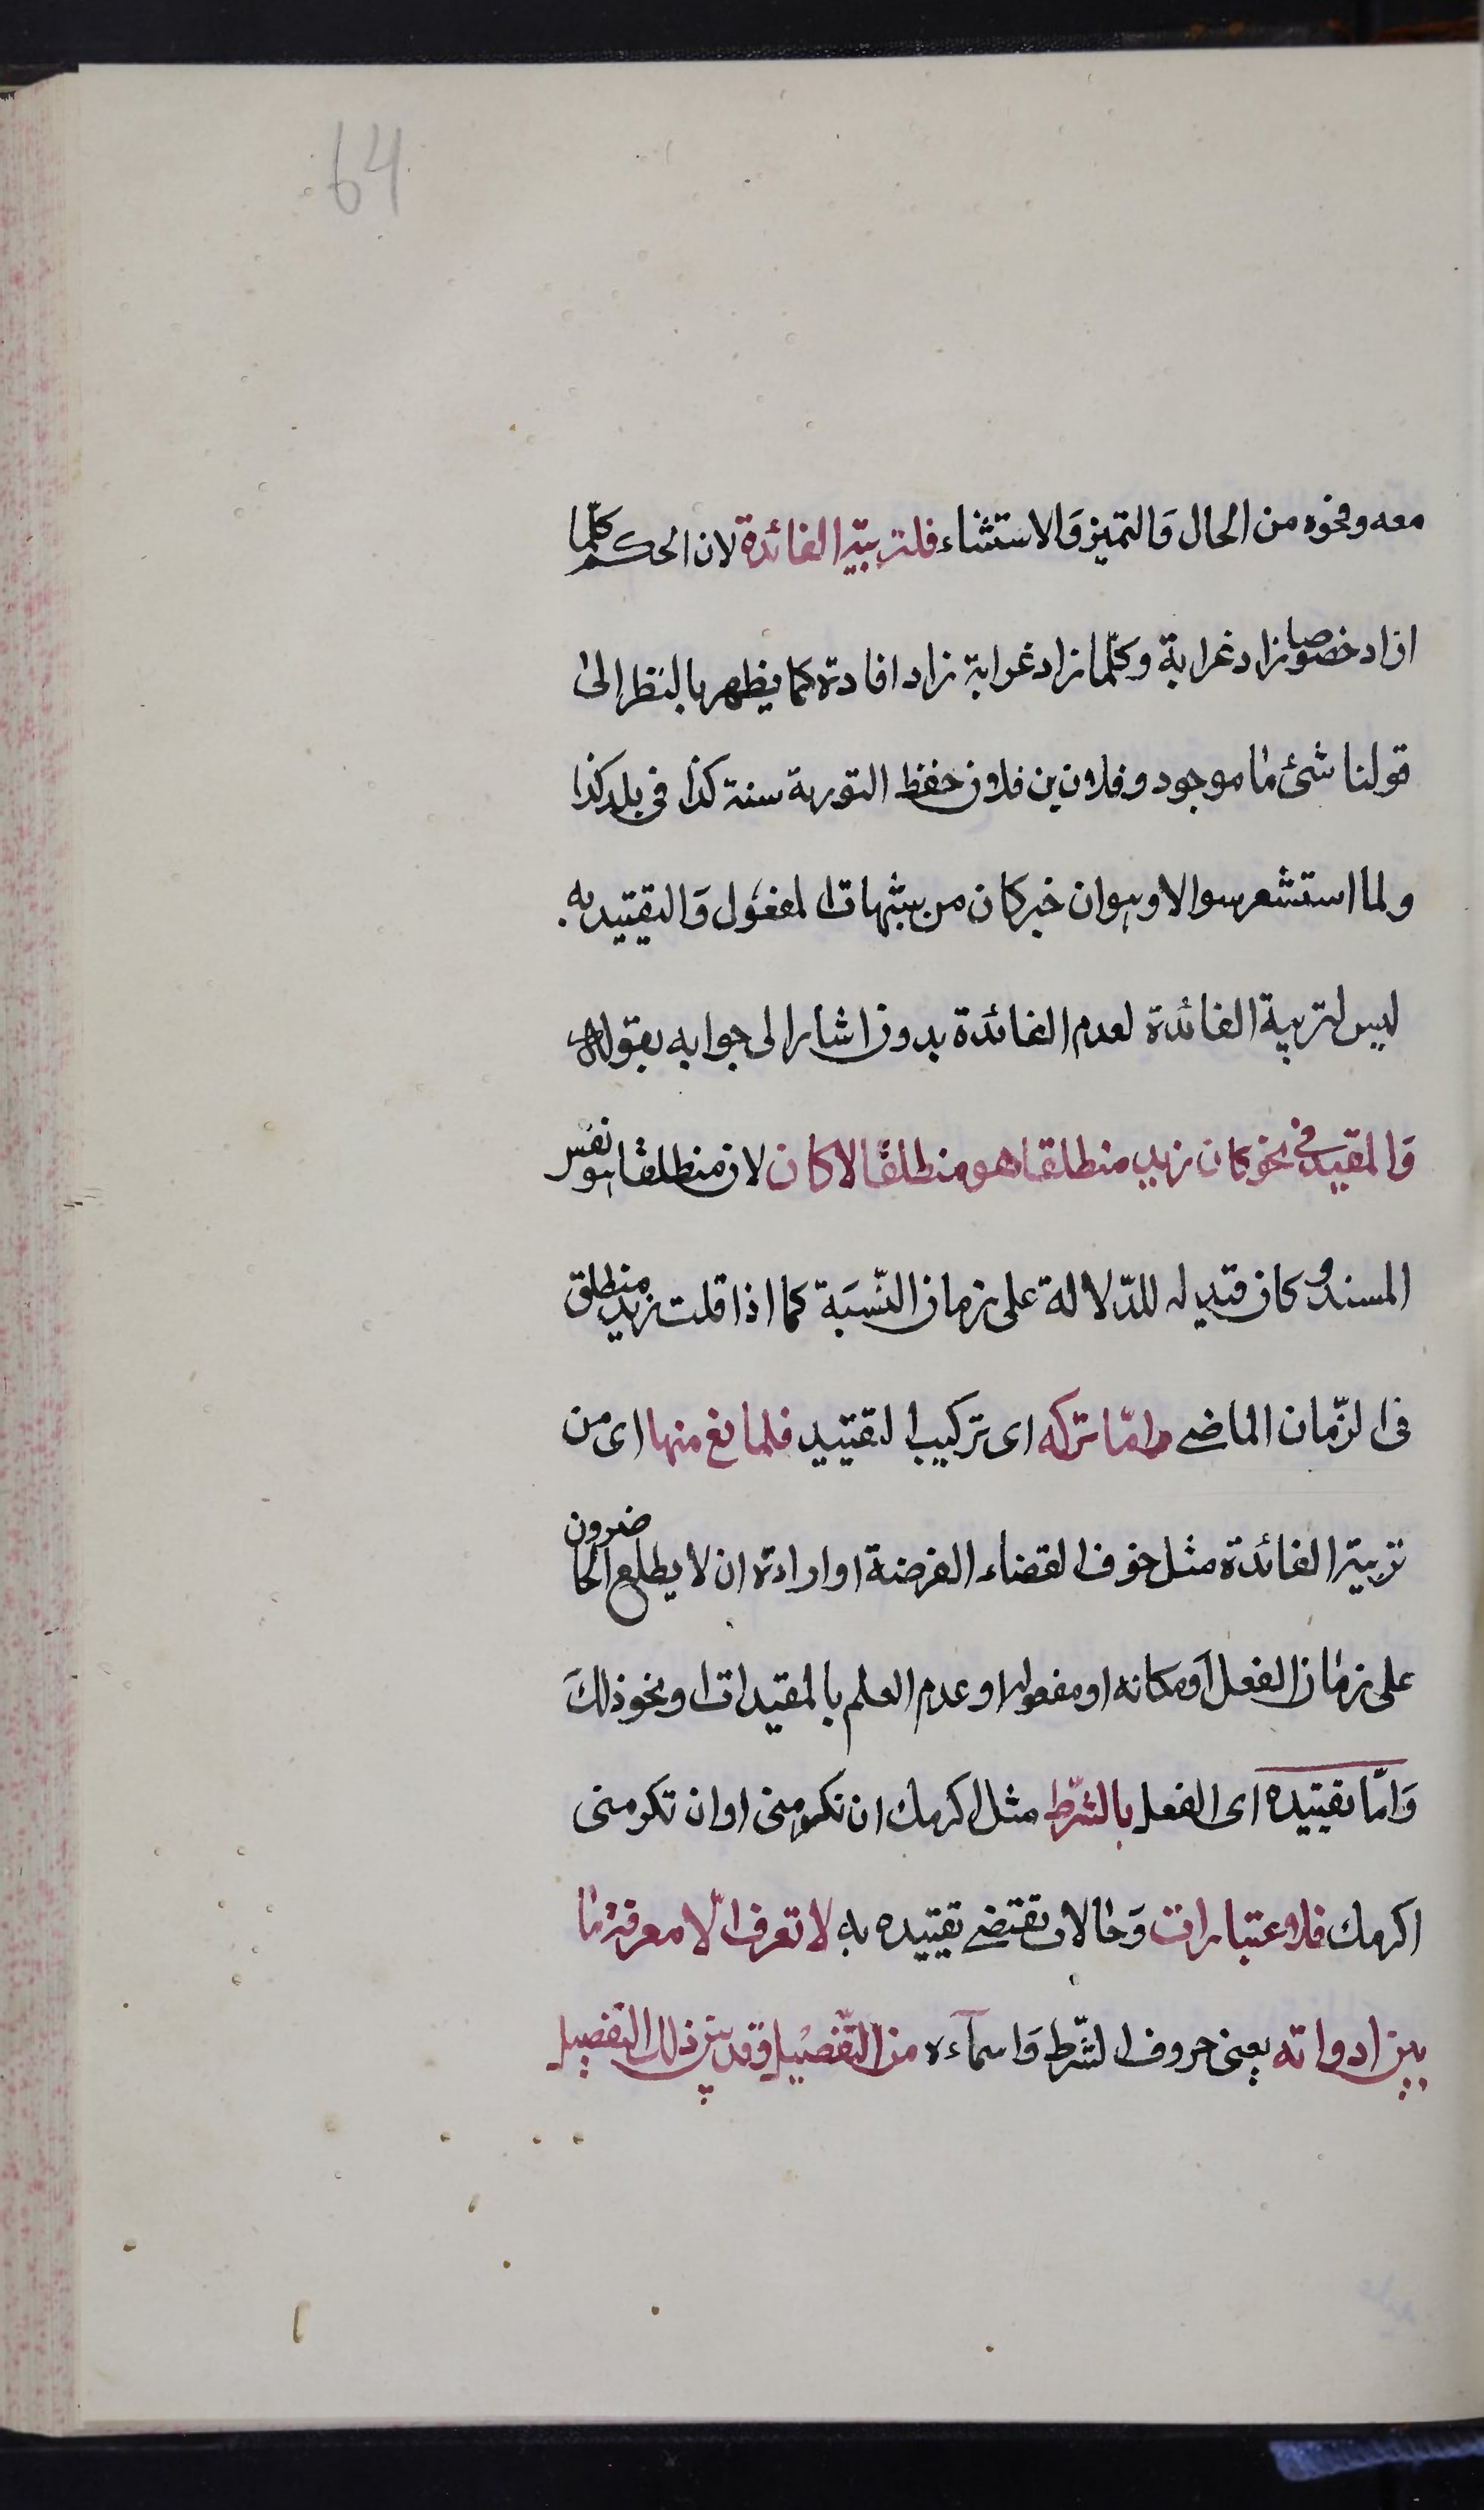 64
معه ونحوه من الحال وَالتميز وَالاستثناء فلتربيته الفائدة لان الحكم كلّما
ازاد خصوصا زاد غرابة وكلّما زاد غرابة زاد افادة كما يظهر بالنظر الىٰ
قولنا شئ مٰا موجود وفلان بن فلان حفظ التورية سنة كذا في بلد كذا
ولما استشعر سوالا وهو ان خبر كان من مشبهات المفعُول وَالتقييد به
ليس لتربية الفائدة لعدم الفائدة بدون اشار الى جوابه بقوله
وَالمقيّد في نحو كان زيد منطلقا هو منطلقًا لا كان لان منطلقا هو نفس
المسند و كان قيد له للدّلالة على زمان النّسبَة كما اذا قلت زيد منطلق
في الزّمان الماضے وامّا تركه اى تركيب التقييد فلمانع منها اى من
تربية الفائدة مثل خوف القضاء الفرضة او ارادة ان لا يطلع الحاضرون
على زمان الفعل اَومكانه او مفعوله او عدم العلم بالمقيدات او نحو ذالكَ
وَامّا تقييده اى الفعل بالشّرط مثل اكرمك ان تكرمنى او ان تكرمنى
اكرمك فلاعتبارات وَحٰالات تقتضے تقييده به لا تعرف الّا معرفة مٰا
بين ادواته يعنى حروف الشّرط وَاسمآءه من التّفصيل وقد بين ذلك التفصيل